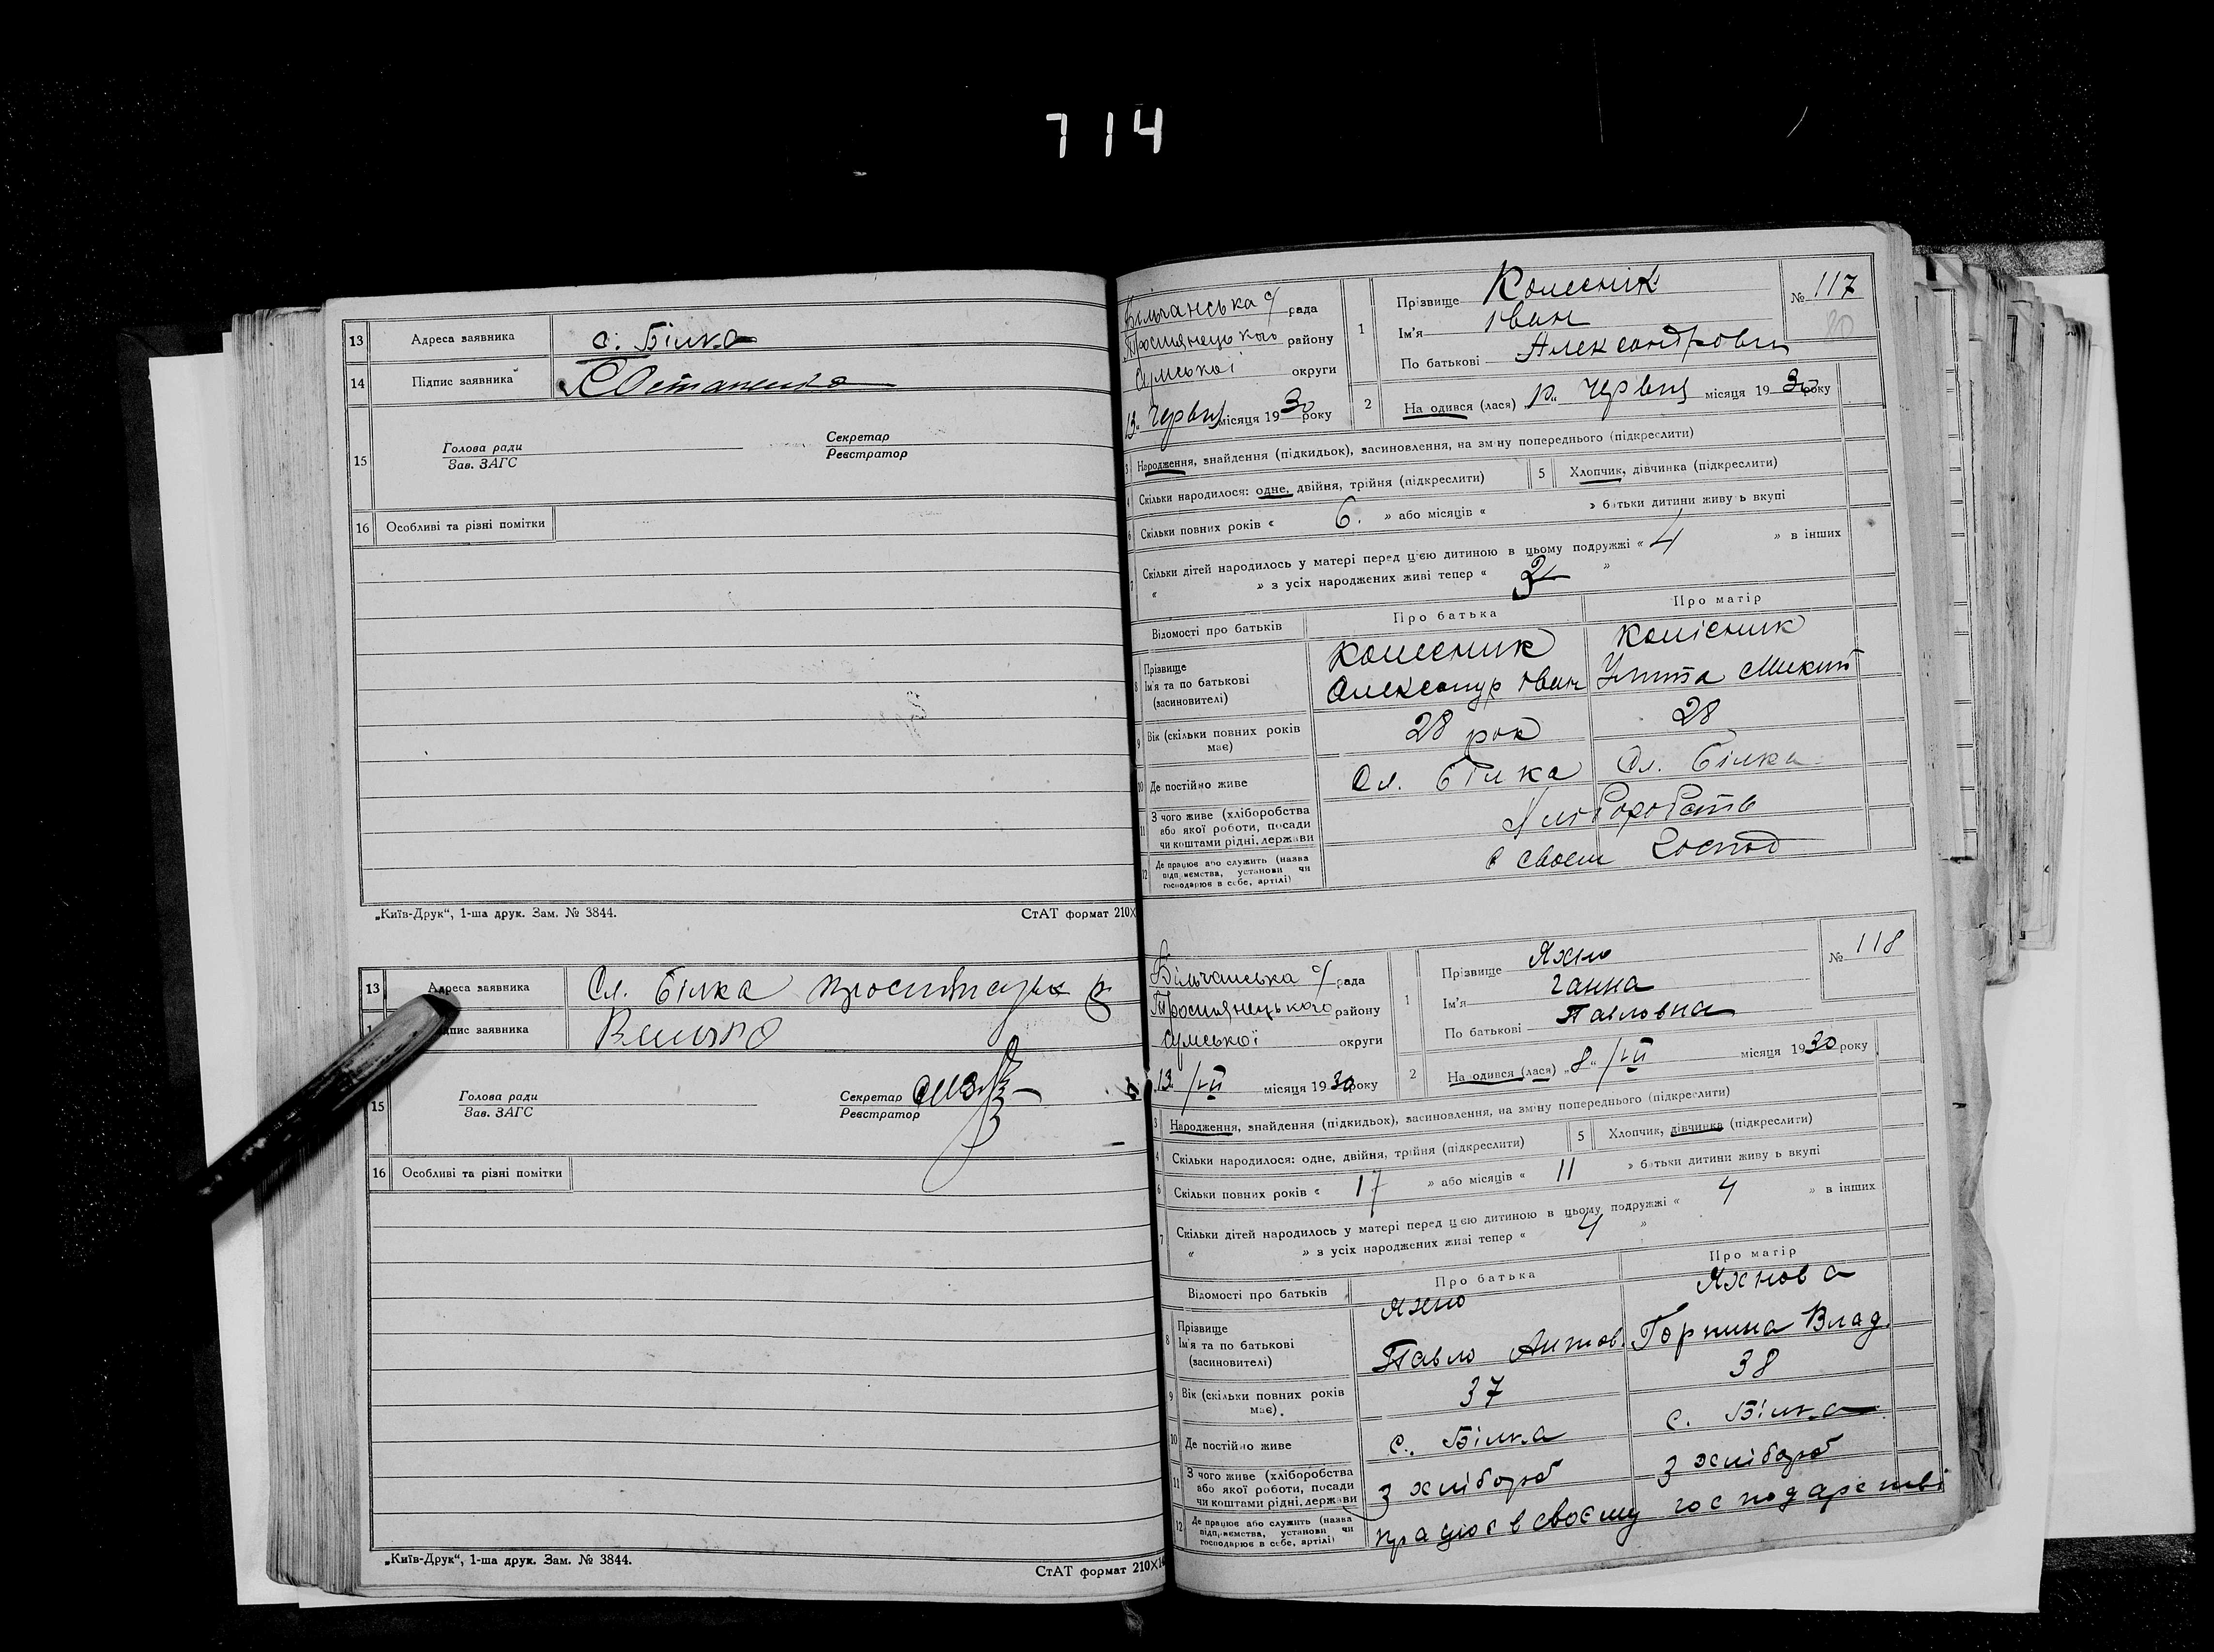 714
13 Адреса заявника с. Білка
14 Підпис заявника Остапенко
15 Голова ради Секретар
Зав. ЗАГС Реєстратор
16 Особливі та різні помітки
„Київ-Друк“, 1-ша друк. Зам. № 3844. СтАТ формат 210×
13 Адреса заявника Сл. Білка
підпис заявника
15 Голова ради Секретар
Зав. ЗАГС Реєстратор
16 Особливі та різні помітки
„Київ-Друк“, 1-ша друк. Зам. № 3844. СтАТ формат 210×
Більчанська с/ рада
Тростянецького району
Сумської округи
13 Червня місяця 1930 року
1 Прізвище Колесник № 117
80
Ім'я Іван
По батькові Александрович
2 На одився (лася) „10„ Червня місяця 1930 року
3 Народження, знайдення (підкидьок), засиновлення, на зміну попереднього (підкреслити)
4 Скільки народилося: одне, двійня, трійня (підкреслити) 5 Хлопчик, дівчинка (підкреслити)
6 Скільки повних років « 6. » або місяців « » батьки дитини живуть вкупі
7 Скільки дітей народилось у матері перед цією дитиною в цьому подружжі « 4 » в інших
« » з усіх народжених живі тепер « 2 »
Відомості про батьків Про батька Про матір
8 Прізвище Колесник Колісник
Ім'я та по батькові Александр Іван Улита Микит
(засиновителі)
9 Вік (скільки повних років має) 28 рок 28
10 Де постійно живе Сл. Білка Сл. Білка
11 З чого живе (хліборобства
або якої роботи, посади
чи коштами рідні, держави
12 Де працює або служить (назва в своєм господ
підприємства, установи чи
господарює в себе, артілі)
Більчанська с/ рада
Тростянецького району
Сумської округи
„13„ /VI місяця 1930 року
1 Прізвище Яхно № 118
Ім'я Ганна
По батькові Павловна
2 На одився (лася) „8„ /VI місяця 1930 року
3 Народження, знайдення (підкидьок), засиновлення, на зміну попереднього (підкреслити)
4 Скільки народилося: одне, двійня, трійня (підкреслити) 5 Хлопчик, дівчинка (підкреслити)
6 Скільки повних років « 17 » або місяців « 11 » батьки дитини живуть вкупі
7 Скільки дітей народилось у матері перед цією дитиною в цьому подружжі « 4 » в інших
« » з усіх народжених живі тепер « 4 »
Відомості про батьків Про батька Про матір
8 Прізвище Яхно Яхнова
Ім'я та по батькові Павло Антов. Горпина Влад.
(засиновителі)
9 Вік (скільки повних років має). 37 38
10 Де постійно живе с. Білка с. Білка
11 З чого живе (хліборобства з хлібороб з хлібороб
або якої роботи, посади
чи коштами рідні, держави
12 Де працює або служить (назва працює в своєму господарстві
підприємства, установи чи
господарює в себе, артілі)